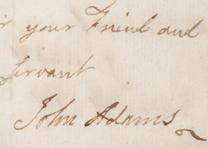 your Friend and
Servant
John Adams